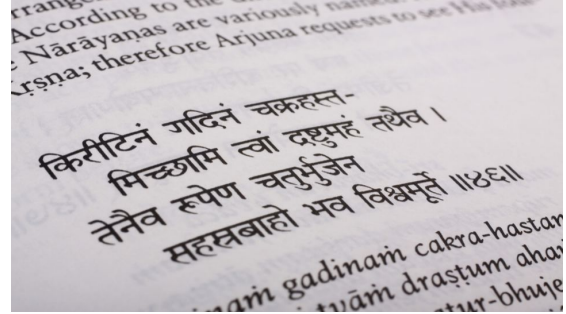 According to the
Nārāyaṇas are variously
Kṛṣṇa; therefore Arjuna requests to see His
किरीटिनं गदिनं चक्रहस्त-
मिच्छामि त्वां द्रष्टुमहं तथैव ।
तेनैव रूपेण चतुर्भुजेन
सहस्रबाहो भव विश्वमूर्ते ॥४६॥
gadinaṁ cakra-hastam
tvāṁ draṣṭum